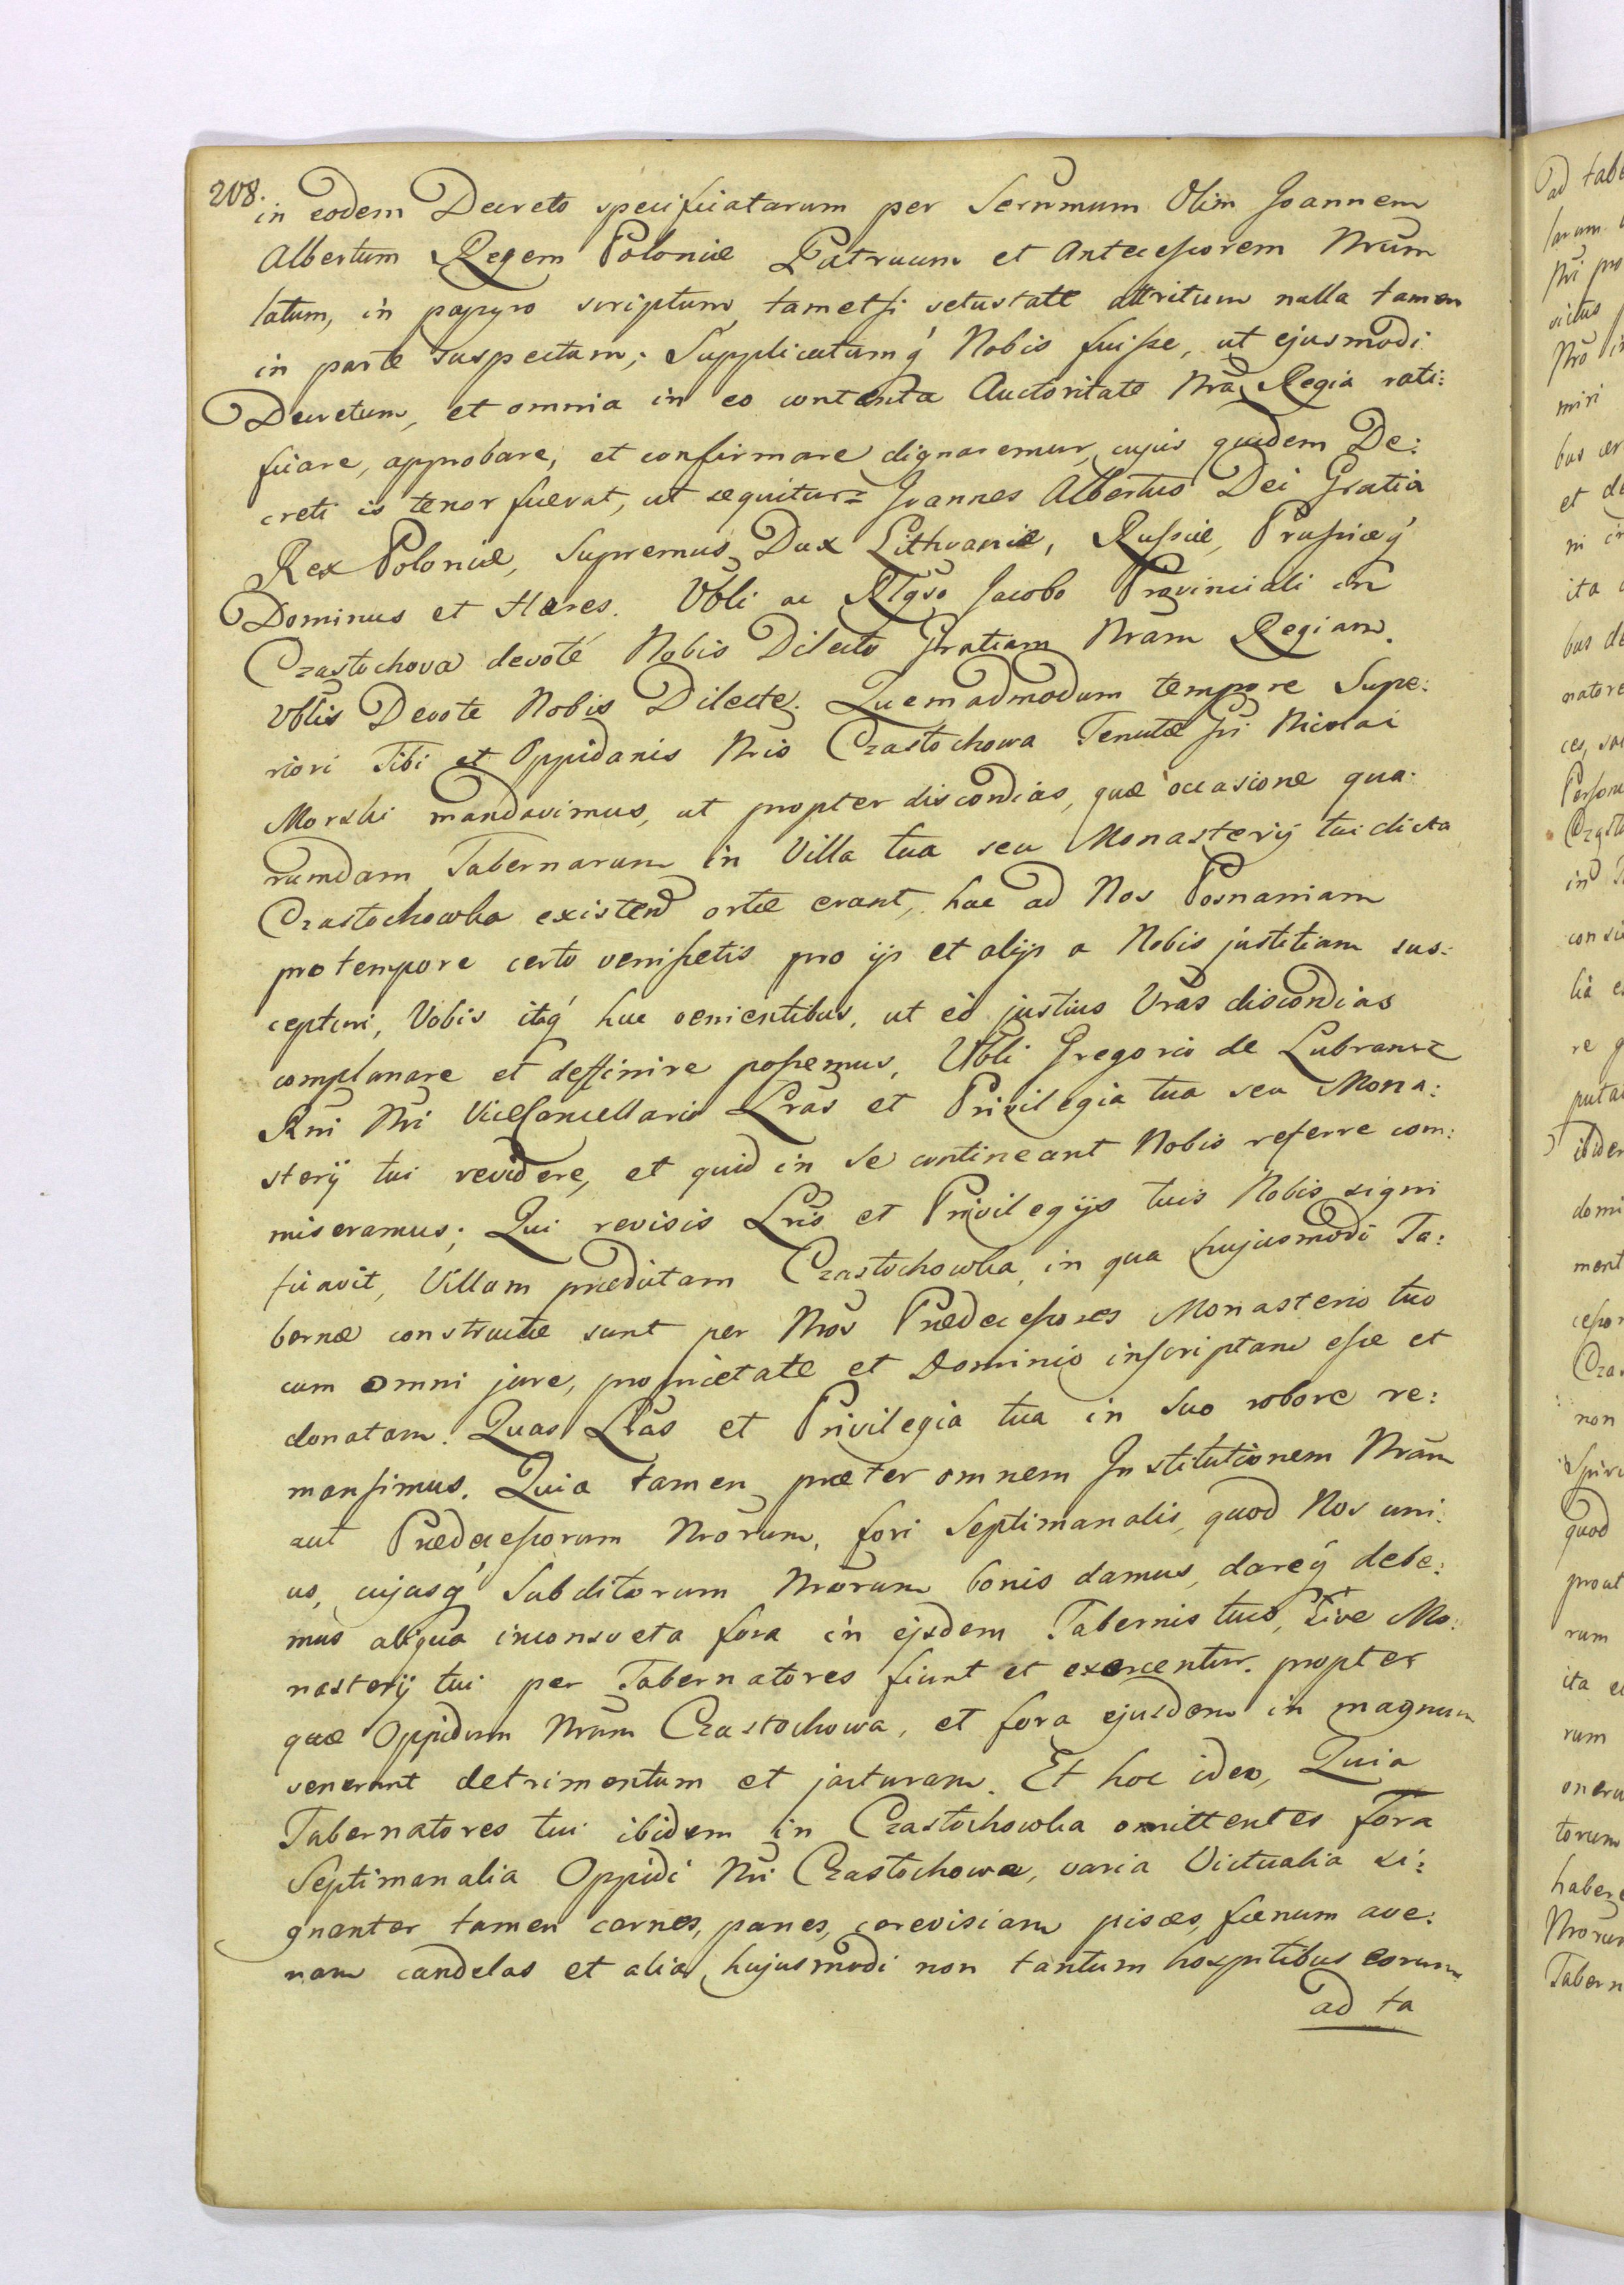 208.
in eodem Decreto specificatarum per Sernmum Olim Joannem
Albertum Regem Poloniæ Patruum et Antecessorem Nrum
latum, in papyro scriptum, tametsi vetustate attritum nulla tamen
in parte suspectum; Supplicatumq́ Nobis fuisse, ut ejusmodi
Decretum, et omnia in eo contenta Auctoritate Nrã Regia rati:
ficare, approbare, et confirmare dignaremur, cujus quidem De:
creti is tenor fuerat, ut sequitur= Joannes Albertus Dei Gratia
Rex Poloniæ, Supremus Dux Lithvaniæ, Russiæ, Prussiæq́
Dominus et Hæres. Vbli ac Rlgso Jacobo Provinciali in
Czastochova devoté Nobis Dilecto Gratiam Nram Regiam.
Vblis Devote Nobis Dilecte. Quemadmodum tempore Supe:
riori Tibi et Oppidanis Nris Czastochowa Tenutæ Gri Nicolai
Morski mandavimus, ut propter discordias, quæ occasione qua:
rumdam Tabernarum in Villa tua seu Monasterij tui dicta
Czastochowka existend ortæ erant, huc ad Nos Posnaniam
pro tempore certo venissetis pro ijs et alijs a Nobis justitiam sus:
cepturi, Vobis itaq́ huc venientibus, ut eò justius Vras discordias
complanare et deffinire possemus, Vbli Gregorio de Lubrancz
Rni Nri ViceCancellario Lras et Privilegia tua seu Mona:
sterij tui revidere, et quid in se contineant Nobis referre com:
miseramus; Qui revisis Lris et Privilegijs tuis Nobis signi
ficavit, Villam prædictam Czastochowka, in qua hujusmodi Ta:
bernæ constructæ sunt per Nros Prædecessores Monasterio tuo
cum omni jure, proprietate et Dominio inscriptam esse et
donatam. Quas Lras et Privilegia tua in suo robore re:
mansimus. Quia tamen præter omnem Institutionem Nram
aut Prædecessorum Nrorum, fori Septimanalis, quod Nos uni:
us, cujusq́ Subditorum Nrorum bonis damus, dareq́ debe:
mus aliqua inconsveta fora in ejsdem Tabernis tuis, sive Mo:
nasterij tui per Tabernatores fiunt et exercentur. propter
quæ Oppidum Nrum Czastochowa, et fora ejusdem in magnum
venerunt detrimentum et jacturam. Et hoc ideo, Quia
Tabernatores tui ibidem in Czastochowka omittentes fora
Septimanalia Oppidi Nri Czastochowa, varia Victualia si:
gnanter tamen carnes, panes, cerevisiam pisces, fœnum ave:
nam candelas et alia hujusmodi non tantum hospitibus eorum
ad ta